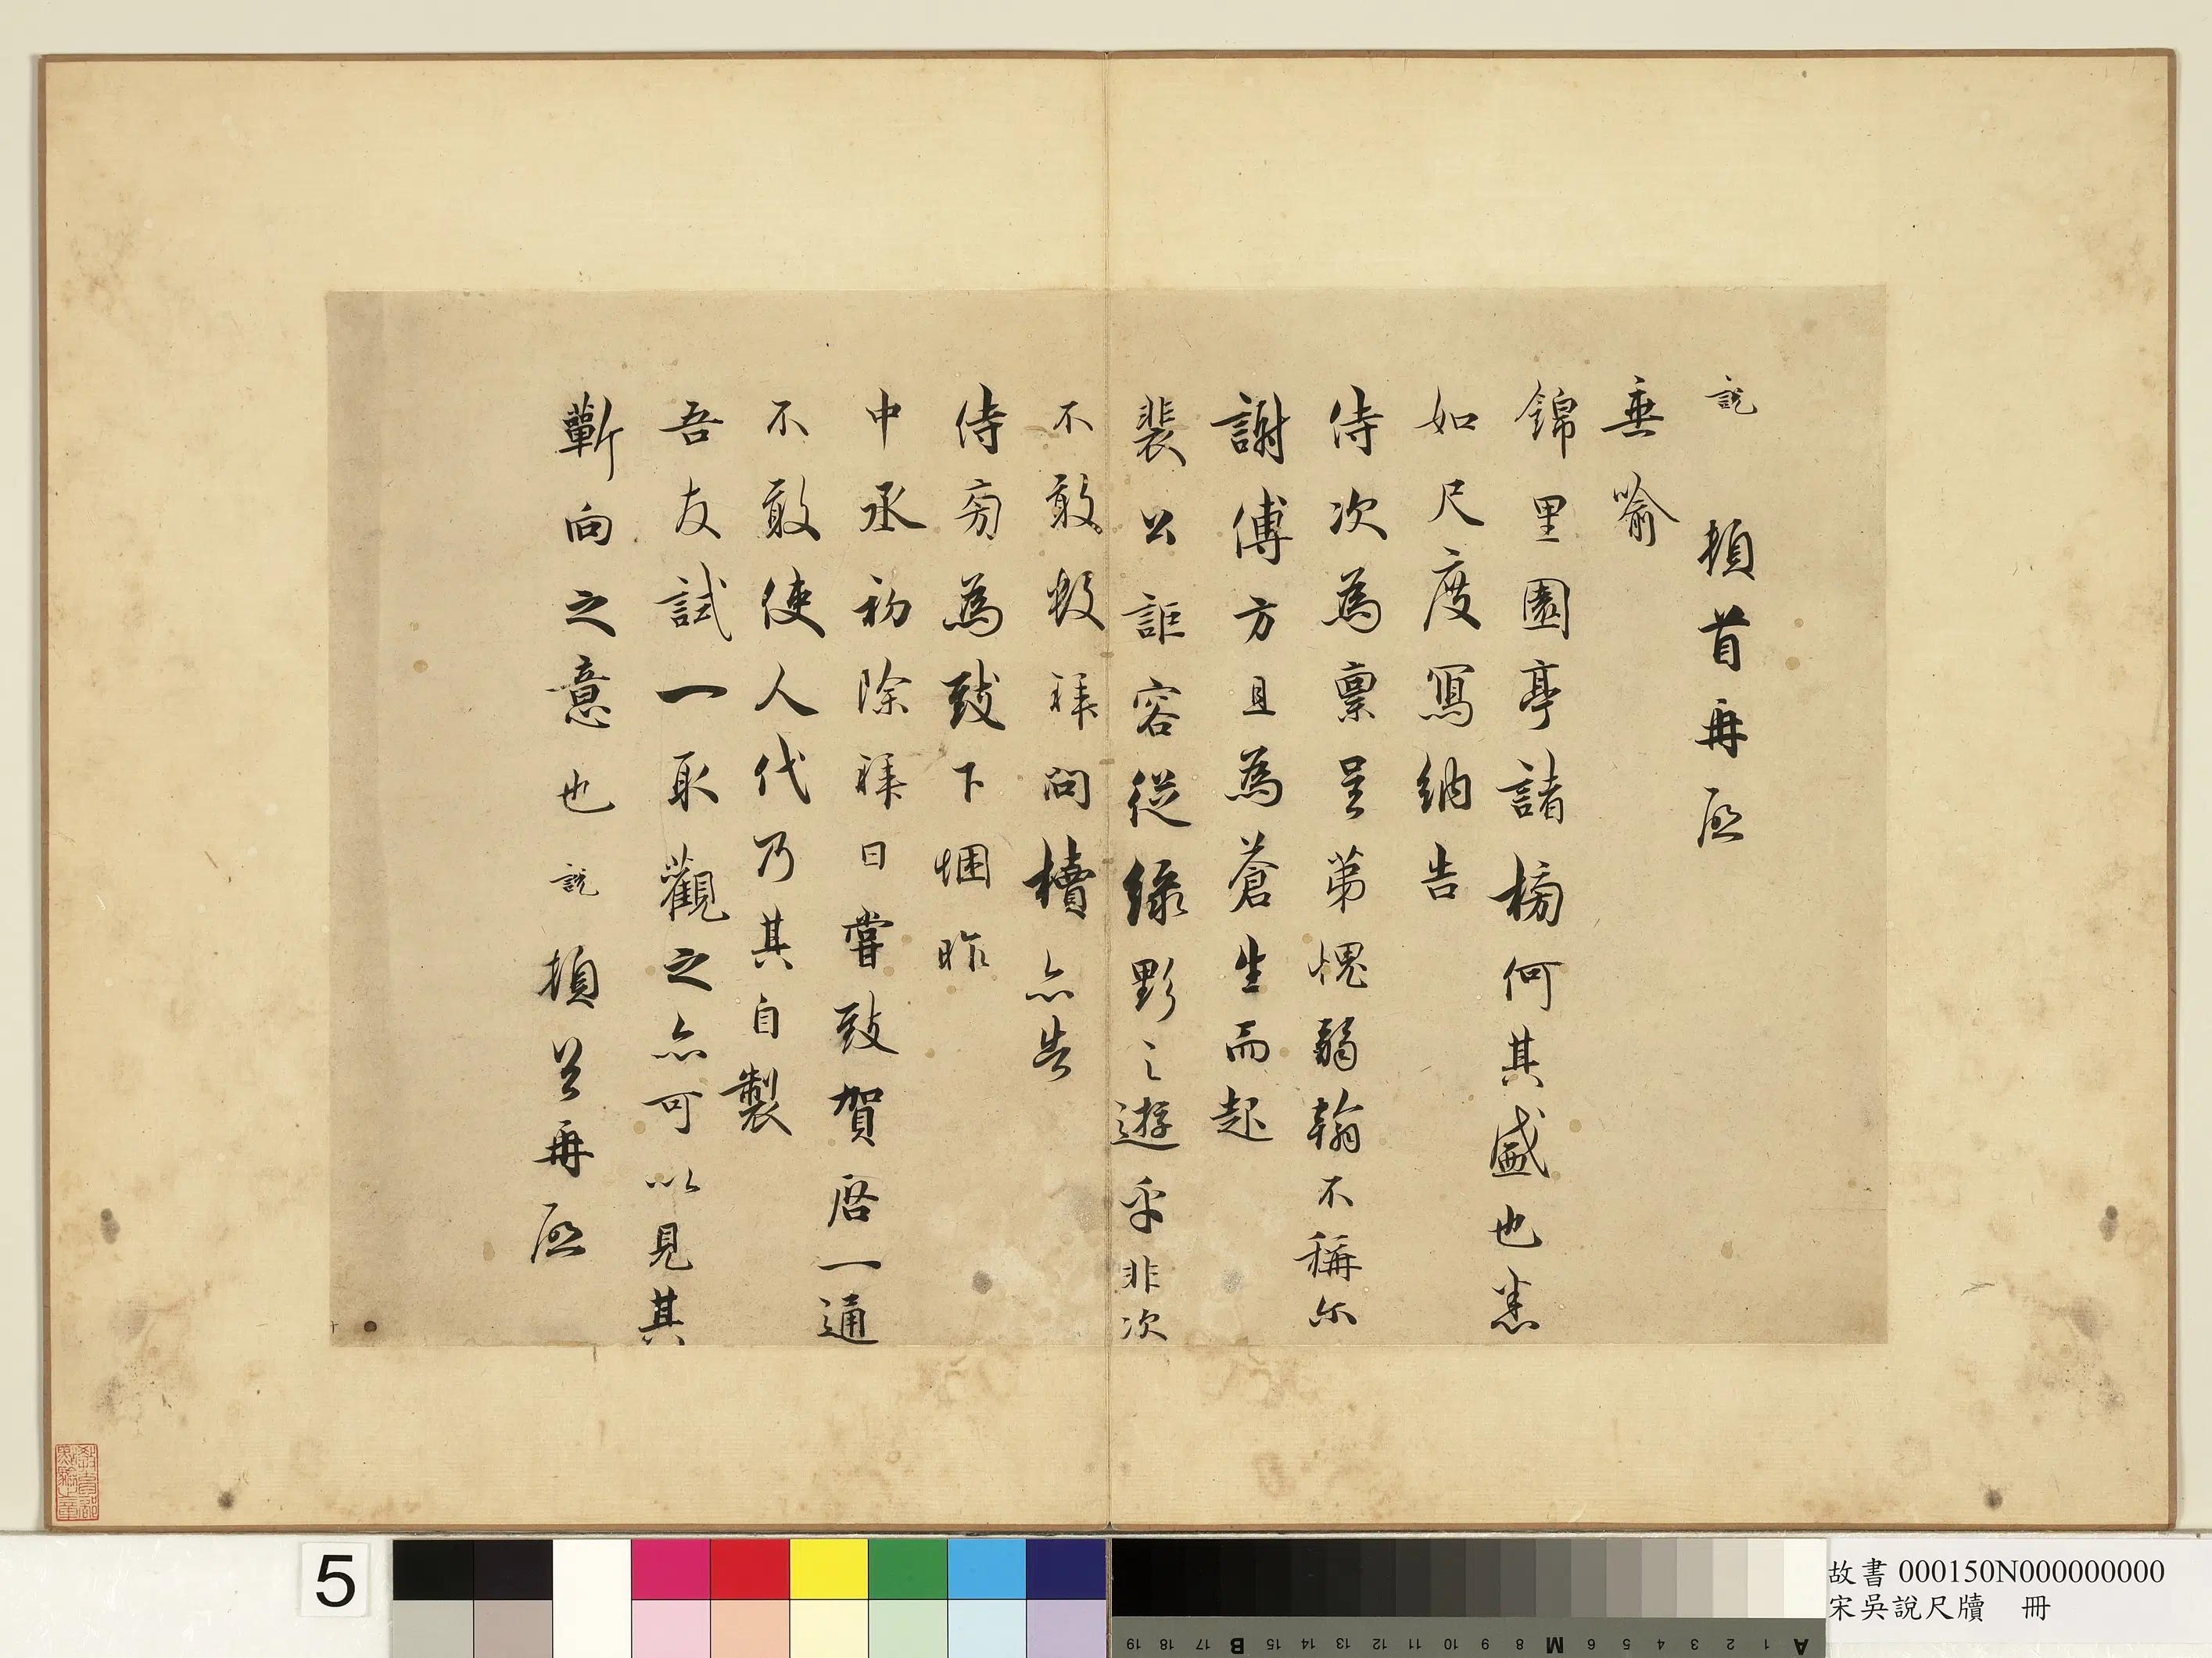 說頓首再啟
垂喻
錦里園亭諸榜何其盛也悉
如尺度寫納告
侍次為稟呈第愧弱翰不稱尔
謝傅方且為蒼生而起
裴公詎容從綠野之遊乎非次
不敢數拜問櫝亦告
侍旁為致下悃昨
中丞初除拜日嘗致賀啓一通
不敢使人代乃其自製
吾友試一取觀之亦可以見其
蘄向之意也說頓首再啟
5
故書 000150N000000000
宋吳說尺牘 冊
A 1 2 3 4 5 6 M 8 9 10 11 12 13 14 15 B 17 18 19